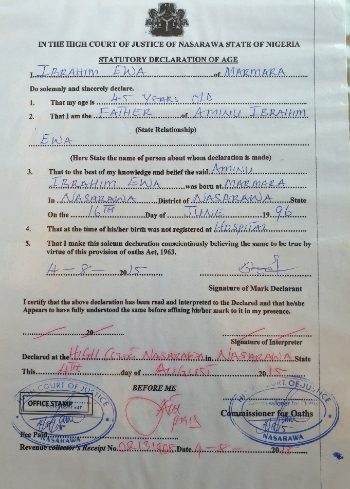 IN THE HIGH COURT OF JUSTICE OF NASARAWA STATE OF NIGERIA
STATUTORY DECLARATION OF AGE
I, IBRAHIM EWA of MARMARA
Do solemnly and sincerely declare.
1. That my age is 45 YEARS OLD
2. That I am the FATHER of AMINU IBRAHIM
(State Relationship)
EWA
(Here State the name of person about whom declaration is made)
3. That to the best of my knowledge and belief the said AMINU
IBRAHIM EWA was born at MARMARA
In NASARAWA District of NASARAWA State
On the 16TH Day of JUNE 1996
4. That at the time of his/her birth was not registered at HOSPITAL
5. That I make this solemn declaration conscientiously believing the same to be true by
virtue of this provision of oaths Act, 1963.
4-8- 2015
Signature of Mark Declarant
I certify that the above declaration has been read and interpreted to the Declared and that he/she
Appears to have fully understood the same before affixing his/her mark to it in my presence.
20
Signature of Interpreter
Declared at the HIGH COURT NASARAWA in NASARAWA State
This 4TH day of AUGUST 2015
BEFORE ME
COURT OF JUSTICE
OFFICE STAMP
NASARAWA
HIGH COURT OF JUSTICE
Commissioner for Oaths
NASARAWA
Fee Paid
Revenue collector's Receipt No. Date 4-8- 20